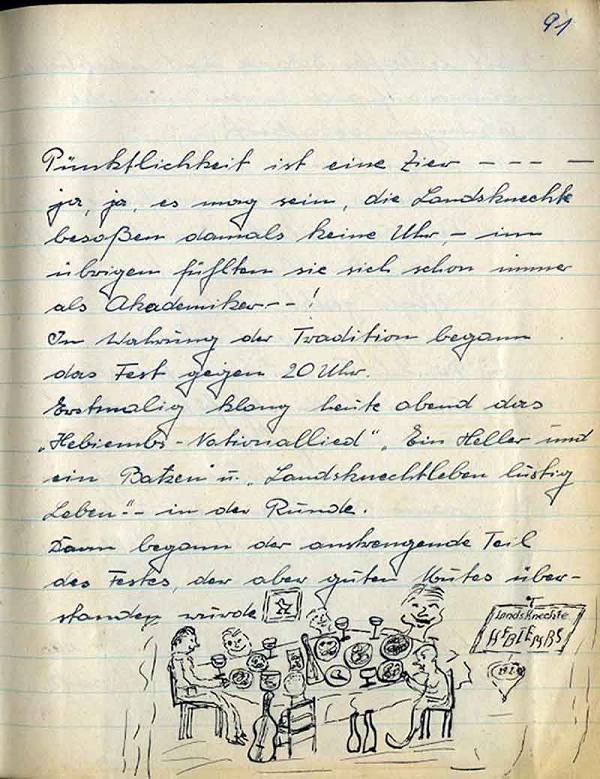 91
Pünktlichkeit ist eine Zier - - - —
ja, ja, es mag sein, die Landsknechte
besaßen damals keine Uhr, - im
übrigen fühlten sie sich schon immer
als Akademiker - - !
In Wahrung der Tradition begann
das Fest gegen 20 Uhr.
Erstmalig klang heute abend das
„Hebiembs-Nationallied" „Ein Heller und
ein Batzen" u. „Landsknechtleben lustig
Leben" - in der Runde.
Dann begann der anstrengende Teil
des Festes, der aber guten Mutes über-
standen wurde
Landsknechte